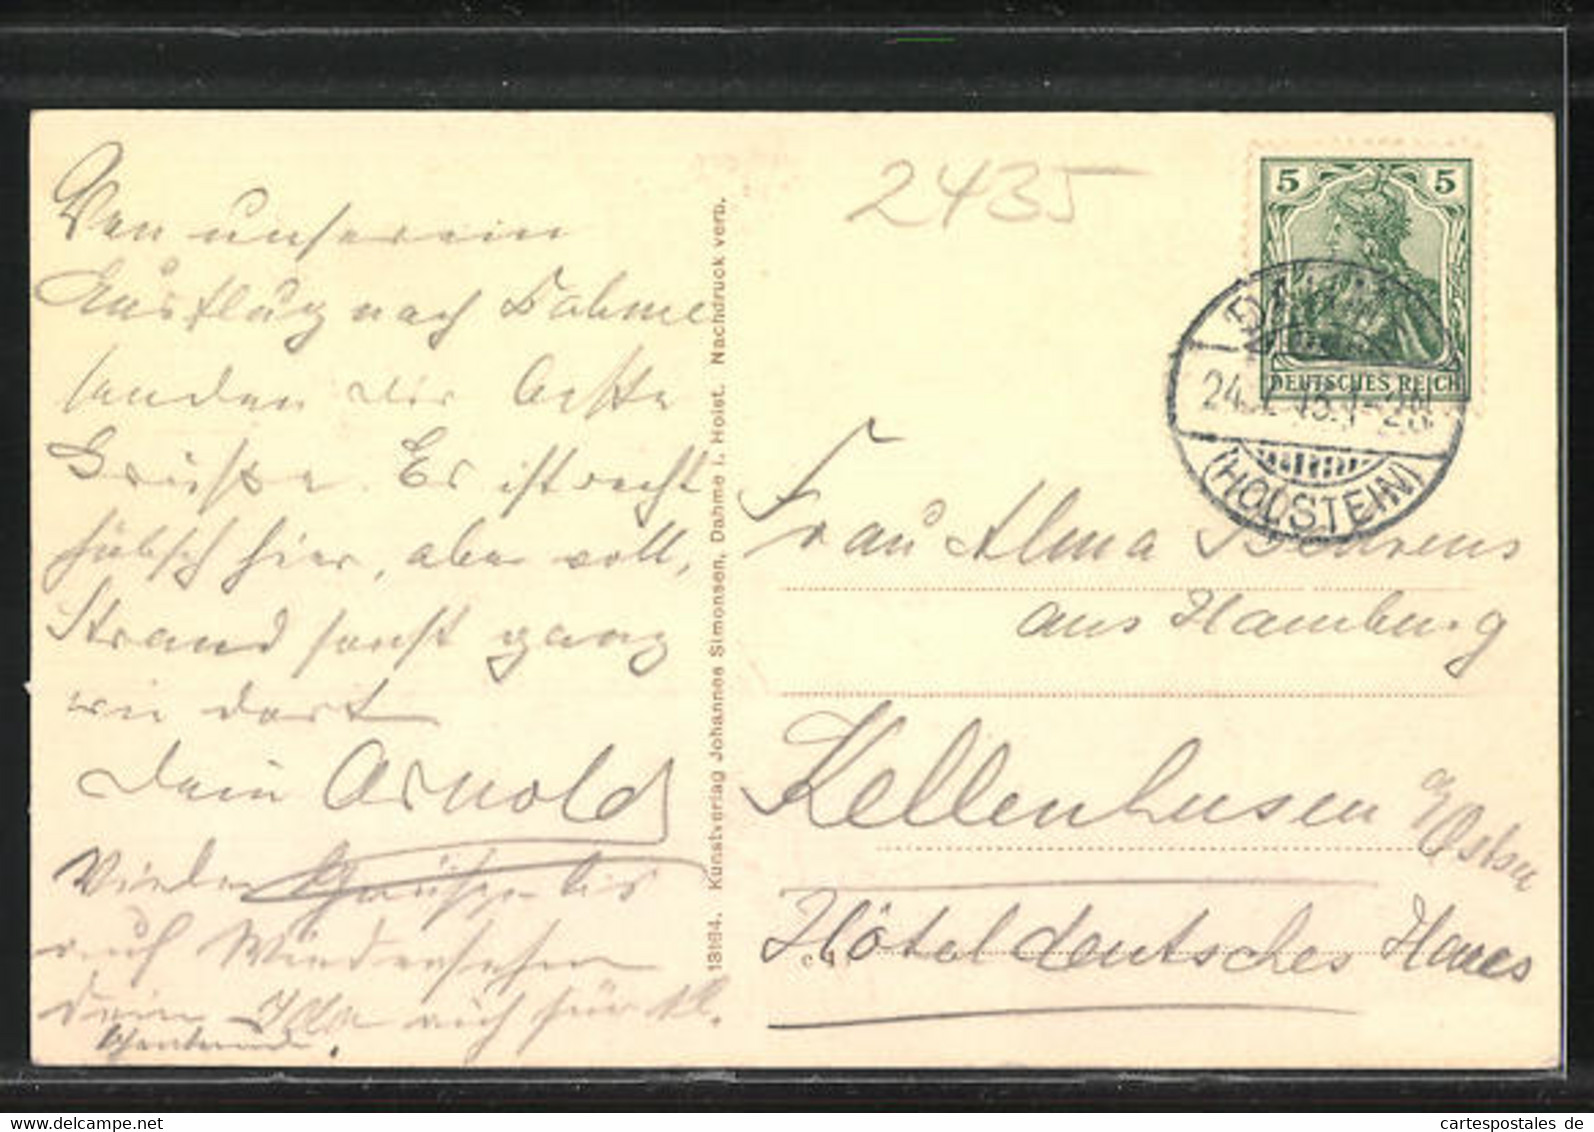 Von unserem
Ausflug nach Dahme
senden wir
Grüsse. Es ist recht
hübsch hier, aber voll,
Strand sonst ganz
wie dort
Dein Arnold
Grüsse bis
auf Wiedersehen
Dein auch für
13864. Kunstverlag Johannes Simonsen, Dahme i. Holst. Nachdruck verb.
2435
5 5
DEUTSCHES REICH
(HOLSTEIN)
Frau Alma Behrens
aus Hamburg
Kellenhusen
a/Ostsee
Hôtel deutsches Haus
cartespostales de